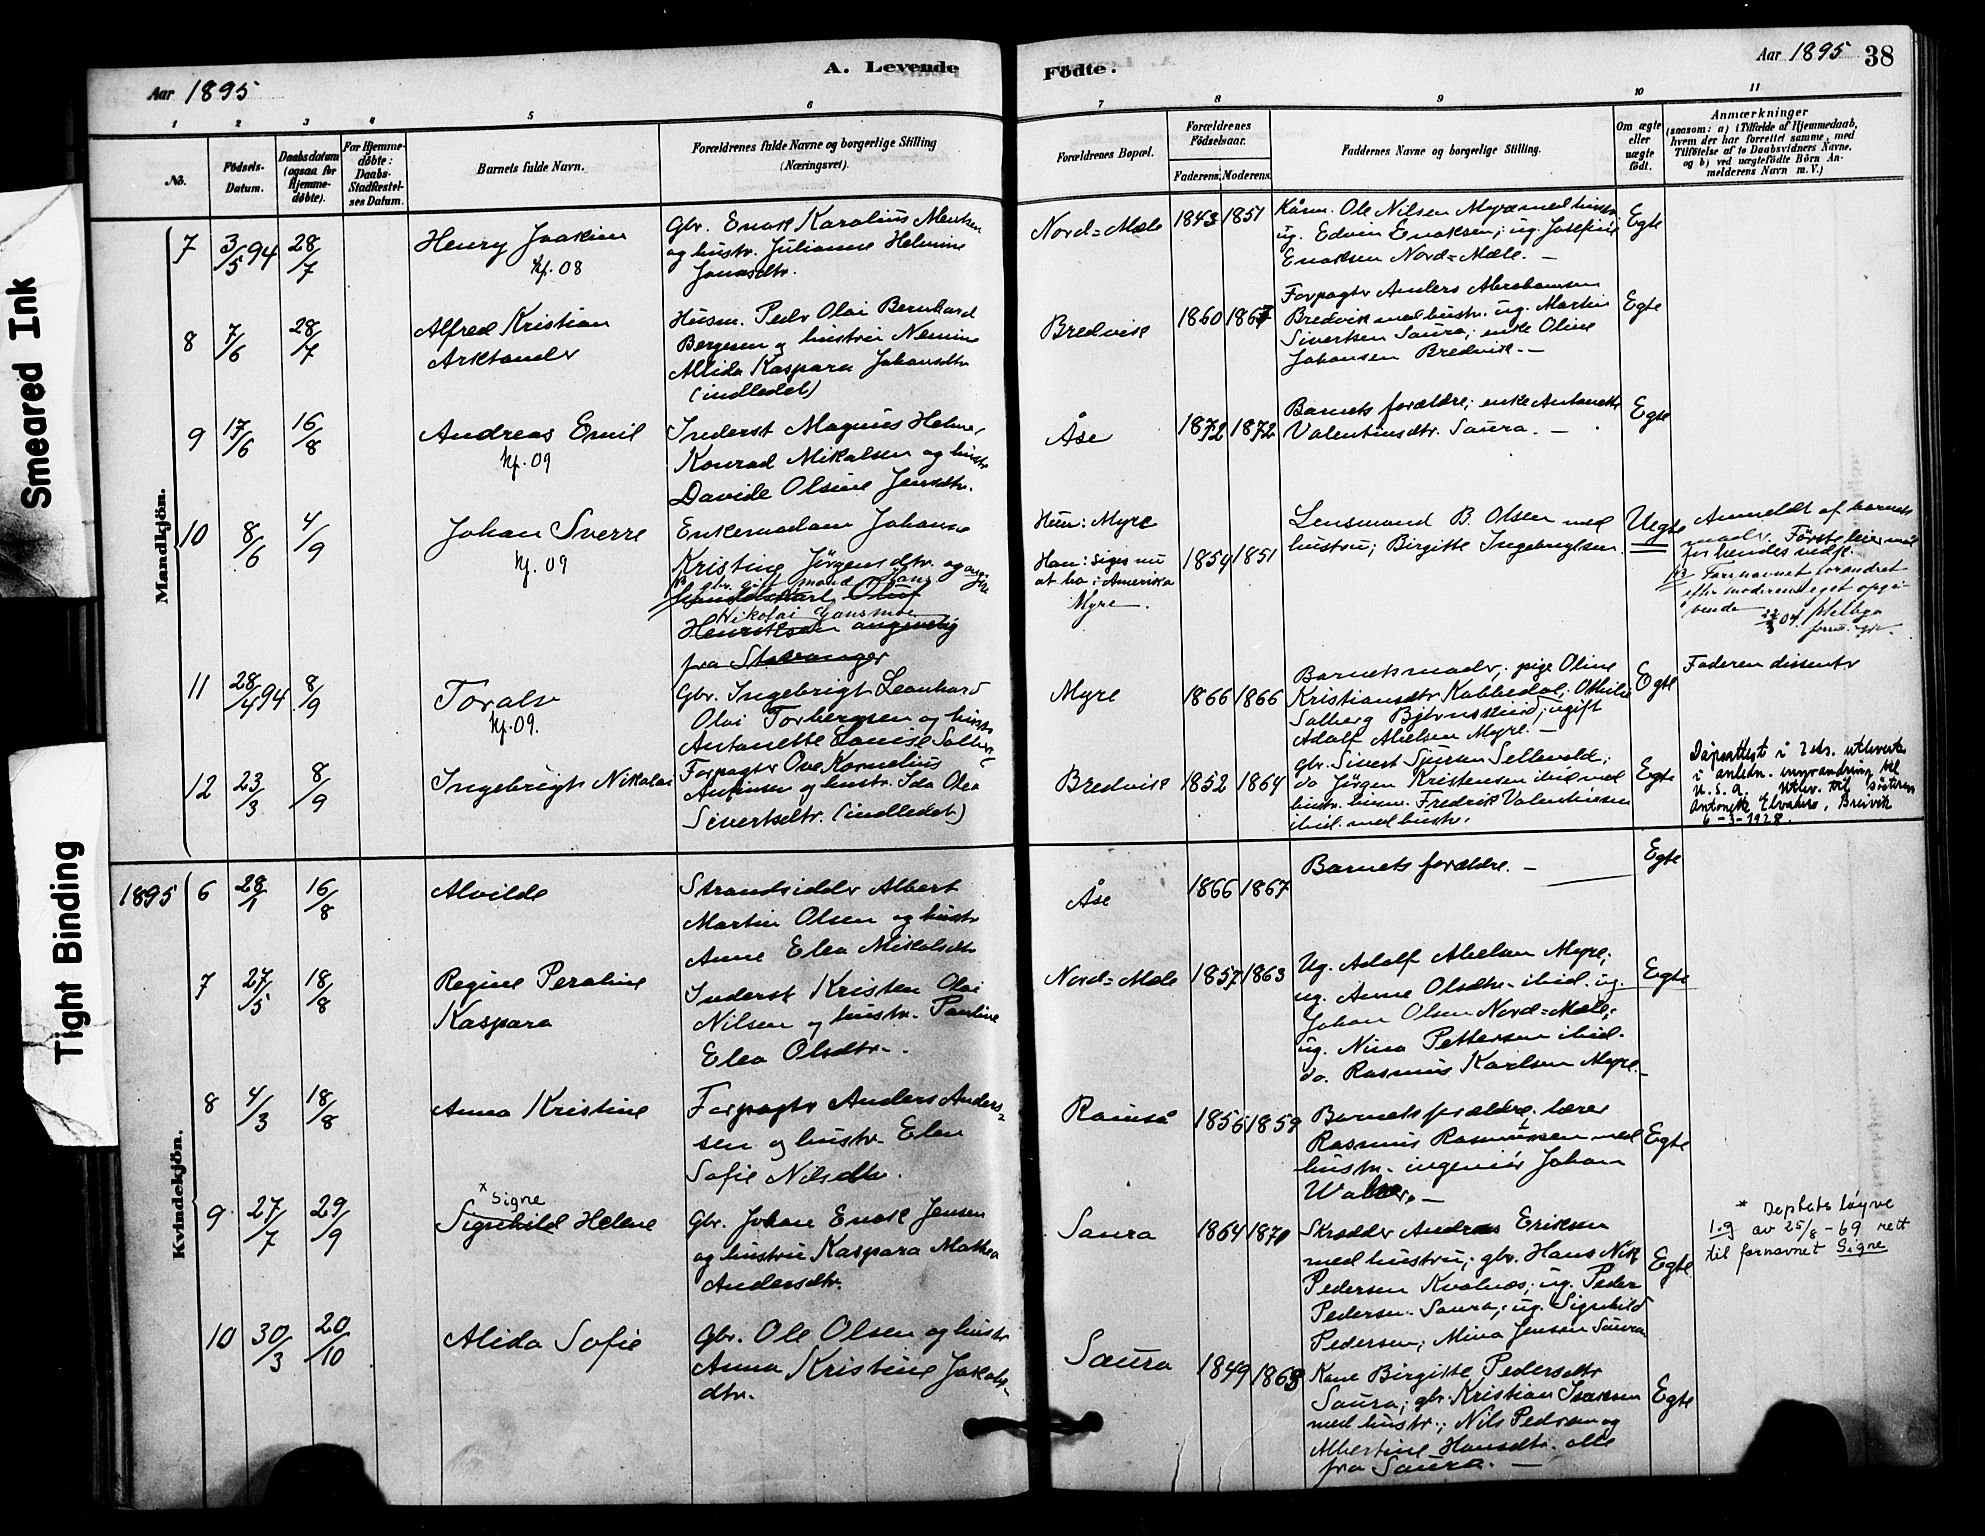 Smeared Ink
Tight Binding
Aar 1895
A. Levende
Födte.
Aar 1895
38
1 2 3 4 5 6 7 8 9 10 11
No.
Födsels-Datum.
Daabsdatum (ogsaa for Hjemmedøbte).
For Hjemmedøbte: Daabs-Stadfæstelses Datum.
Barnets fulde Navn.
Forældrenes fulde Navne og borgerlige Stilling
(Næringsvei).
Forældrenes Bopæl.
Forældrenes Födselsaar.
Faderens. Moderens.
Faddernes Navne og borgerlige Stilling.
Om ægte eller uægte födt.
Anmærkninger
(saasom: a) i Tilfælde af Hjemmedaab, hvem der har forrettet samme, med Tilföielse af to Daabsvidners Navne, og b) ved uægtefödte Börn Anmelderens Navn m. V.)
Mandkjön.
7 3/5 94 28/7
Henry Joakim
kf. 08
Gbr. Enok Karolius
og hustr. Julianne Helmine
Jonasdtr.
Nord=Mæle
1843 1851
Kårm. Ole Nilsen Myre med hustr.
ug. Edvin Enoksen; ug. Josefine
Enoksen Nord=Mæle. —
Egte
8 7/6 28/7
Alfred Kristian
Arktander
Husm. Peder Olai Bernhard
Bergesen og hustru Nemine
Alida Kaspara Johansdtr
(indledet)
Bredvik
1860 1867
Forpagter Anders Abrahamsen
Bredvik med hustr. ug. Martin
Sivertsen Saura; enke Oline
Johansen Bredvik. —
Egte
9 17/6 16/8
Andreas Emil
kf. 09
Inderst Magnus Helmer
Konrad Mikalsen og hustr
Davide Olsine Jensdtr.
Åse
1872 1872
Barnets forældre; enke Antonette
Valentinsdtr. Saura. —
Egte
10 8/6 4/9
Johan Sverre
kf. 09
Enkemadam Johanne
Kristine Jørgensdtr. og
gbr. gift mand
Handelskarl Oluf
Nikolai
Henriksen angivelig
fra Stavanger
Hun: Myre
Han: siges nu
at bo i Amerika
Myre.
1854 1851
Lensmand B. Olsen med
hustru; Birgitte Ingebrigtsen.
Uegte
Anmeldt af barnets
moder. Første leiermål
for hendes vedk.
Farsnavnet forandret
efter moderens eget opgi-
vende
11 28/4 94 8/9
Toralv
kf. 09.
Gbr. Ingebrigt Leonhard
Olai Torbergsen og hustr
Antonette Louise Solberg
Myre
1866 1866
Barnets moder; pige Oline
Kristiansdtr Kobbedal; Othilie
Solberg Bjørnskind; ugift
Adolf Abelsen Myre. —
Egte
Faderen dissenter
12 23/3 8/9
Ingebrigt Nikolai
Forpagter Ove Kornelius
Antonsen og hustr. Ida Olea
Sivertsdtr. (indledet)
Bredvik
1852 1864
gbr. Sivert Sjursen Sellevold;
do Jørgen Kristensen ibid med
hustr. husm. Fredrik Valentinsen
ibid. med hustr.
Egte
Dåpsattest i 2 eks. utlevert
i anledn. innvandring til
U.S.A. Utlev. til søsteren
Antonette Elvakre, Breivik
6-3-1928.
Kvindekjön.
1895 6 28/1 16/8
Alvilde
Strandsidder Albert
Martin Olsen og hustr
Anne Elea Mikalsdtr
Åse
1866 1867
Barnets forældre. —
Egte
7 27/5 18/8
Regine Peraline
Kaspara
Inderst Kristen Olai
Nilsen og hustr. Pauline
Elea Olsdtr.
Nord=Mæle
1857 1863
Ug. Adolf Abelsen Myre;
ug. Anne Olsdtr. ibid. ug.
Johan Olsen Nord=Mæle;
ug. Nina Pettersen ibid.
do. Rasmus Karlsen Myre. —
Egte
8 4/3 18/8
Anna Kristine
Forpagter Anders Anders-
sen og hustr. Elen
Sofie Nilsdtr.
Ramså
1856 1859
Barnets forældre; lærer
Rasmus Rasmussen med
hustr. ingeniør Johan
Egte
9 27/7 29/9
x Signe
Signhild Helene
Gbr. Johan Enok Jensen
og hustru Kaspara Mathea
Andersdtr.
Saura
1864 1870
Skrædder Andreas Eriksen
med hustru; gbr. Hans Nik
Pedersen Kvalnes; ug. Peder
Pedersen Saura; ug. Signhild
Pedersen; Mina Jensen Saura
Egte
* Deptets løyve
av 25/8-69 rett
til fornavnet Signe
10 30/3 20/10
Alida Sofie
Gbr. Ole Olsen og hustr
Anna Kristine Jakobs-
dtr.
Saura
1849 1863
Kone Birgitte Pedersdtr
Saura; gbr. Kristian Isaksen
med hustr.; Nils Pedersen og
Albertine Hansdtr. alle
fra Saura. —
Egte